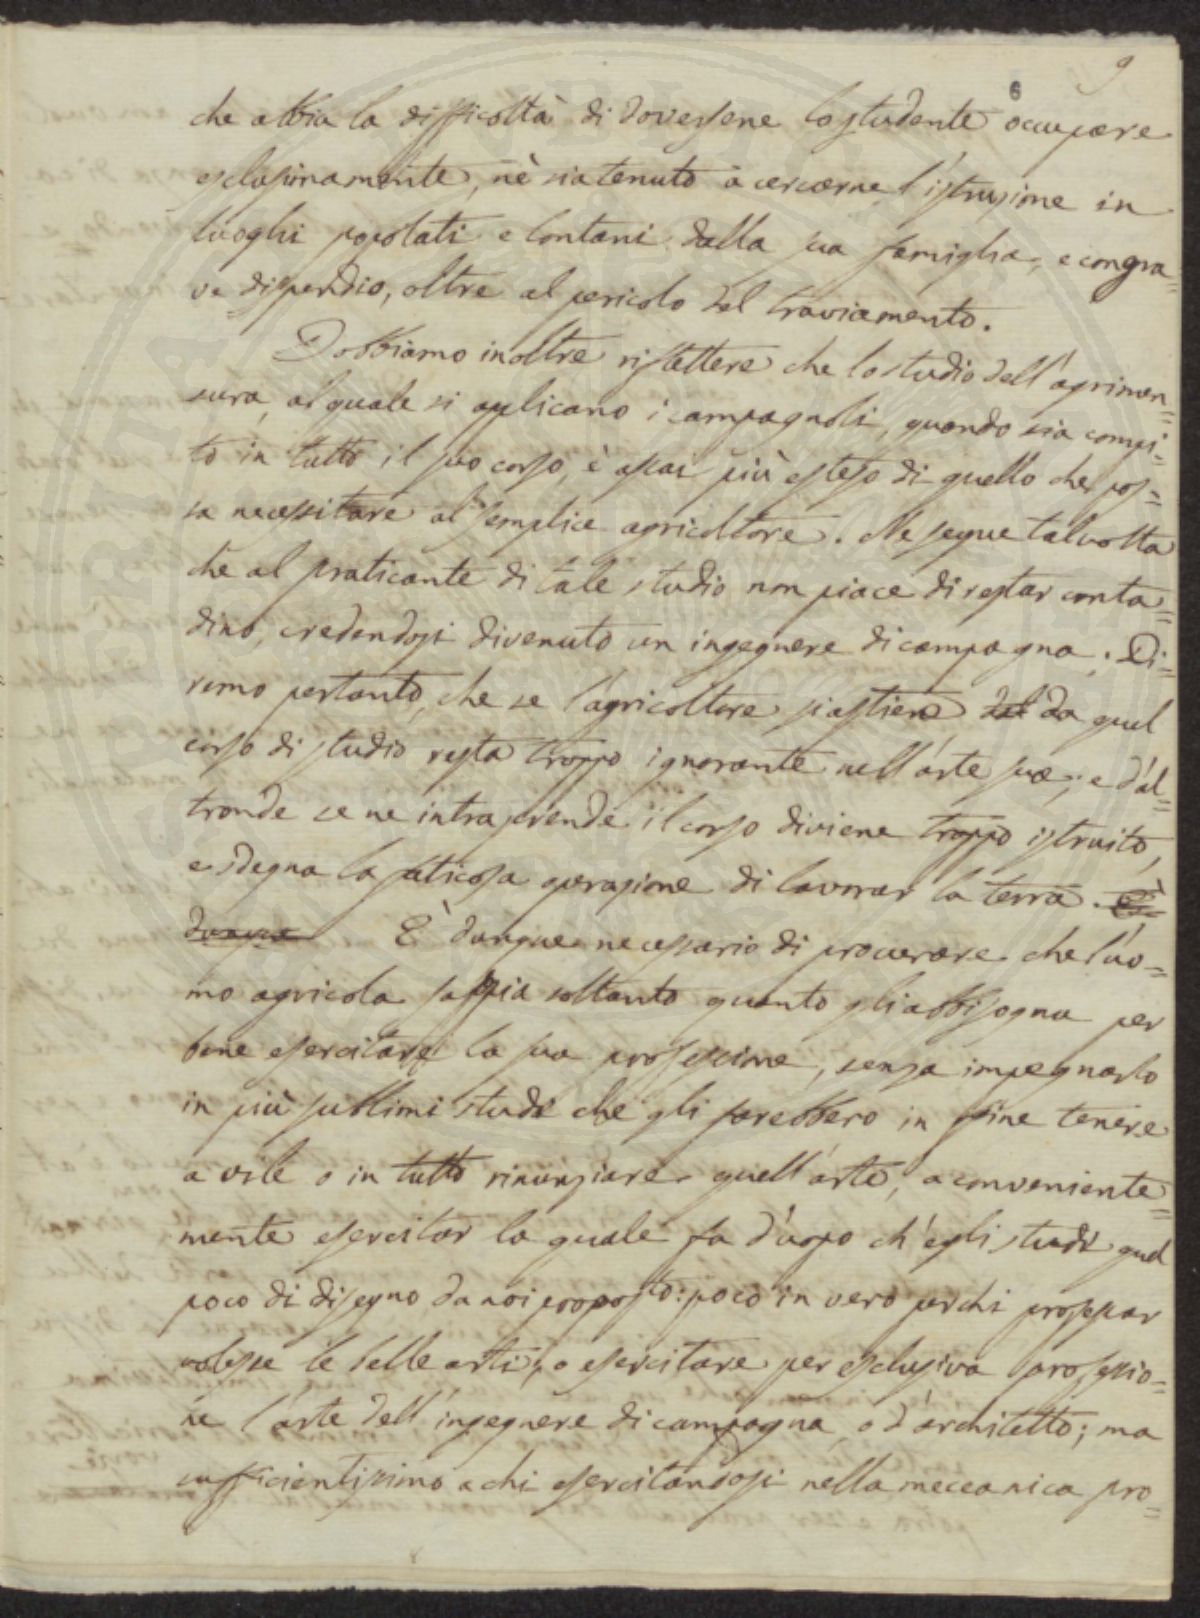 9
6
che abbia la difficoltà di doversene lo studente occupare
esclusivamente, nè sia tenuto a cercarne l'istruzione in
luoghi popolati e lontani dalla sua famiglia, e con gra=
ve dispendio, oltre al pericolo del traviamento.
Dobbiamo inoltre riflettere che lo studio dell'agrimen=
sura, al quale si applicano i campagnoli, quando sia compi=
to in tutto il suo corso, è assai più esteso di quello che pos=
sa necessitare al semplice agricoltore. Ne segue talvolta
che al praticante di tale studio non piace di restar conta=
dino, credendosi divenuto un ingegnere di campagna. Di=
remo pertanto, che se l'agricoltore si astiene dal da quel
corso di studio resta troppo ignorante nell'arte sua; e d'al=
tronde se ne intraprende il corso diviene troppo istruito,
e sdegna la faticosa operazione di lavorar la terra. È
dunque È dunque necessario di procurare che l'uo=
mo agricola sappia soltanto quanto gli abbisogna per
bene esercitare la sua professione, senza impegnarlo
in più sublimi studi che gli farebbero in fine tenere
a vile o in tutto rinunziare quell'arte, a conveniente=
mente esercitar la quale fa d'uopo ch'egli studi quel
poco di disegno da noi proposto: poco in vero per chi professar
volesse le belle arti, o esercitare per esclusiva professio=
ne l'arte dell'ingegnere di campagna, o d'architetto; ma
sufficientissimo a chi esercitandosi nella meccanica pro=